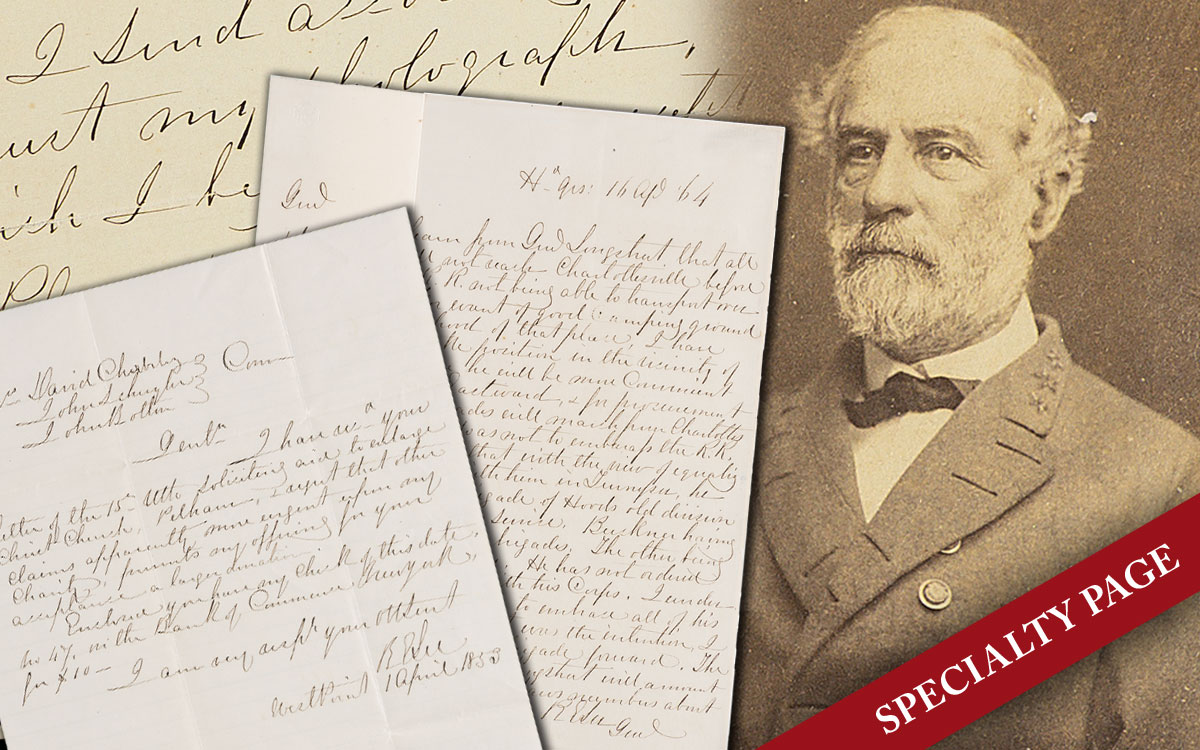 I send a
ust my photograph,
ish I be
Hd qrs: 16 Apl '64
Genl
from Genl Longstreet that all
not reach Charlottesville before
R. not being able to transport over
want of good camping ground
hood of that place. I have
position in the vicinity of
he will be more convenient
Eastward, & for procurement
will march from Charlottes
as not to embarrass the R.R.
that with the view of equaliz
with them in Tennessee, he
gade of Hoods old division
Buckner having
rigades. The other being
He has not ordered
with his Corps. I under
to embrace all of his
was the intention, I
gade forward. The
that will amount
numbers about
R E Lee
Genl
David
John Schuyler
John Bolton
Com
Gentn I have recd your
letter of the 15 Ulto. soliciting aid to enlarge
Christ Church, Pelham, & regret that other
claims apparently more urgent upon my
Charity, prevents my offering for your
acceptance a larger donation.
Enclosed you have my check of this date,
no 47, on the Bank of Commerce New York,
for $10—
I am very respy your obt Servt
R E Lee
West Point 1 April 1853
SPECIALTY PAGE